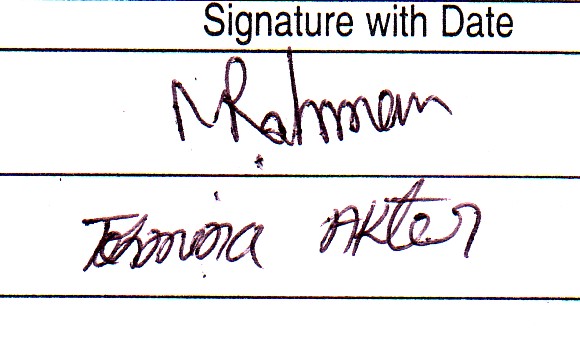 Signature with Date
NRahman
Tahmina Akter